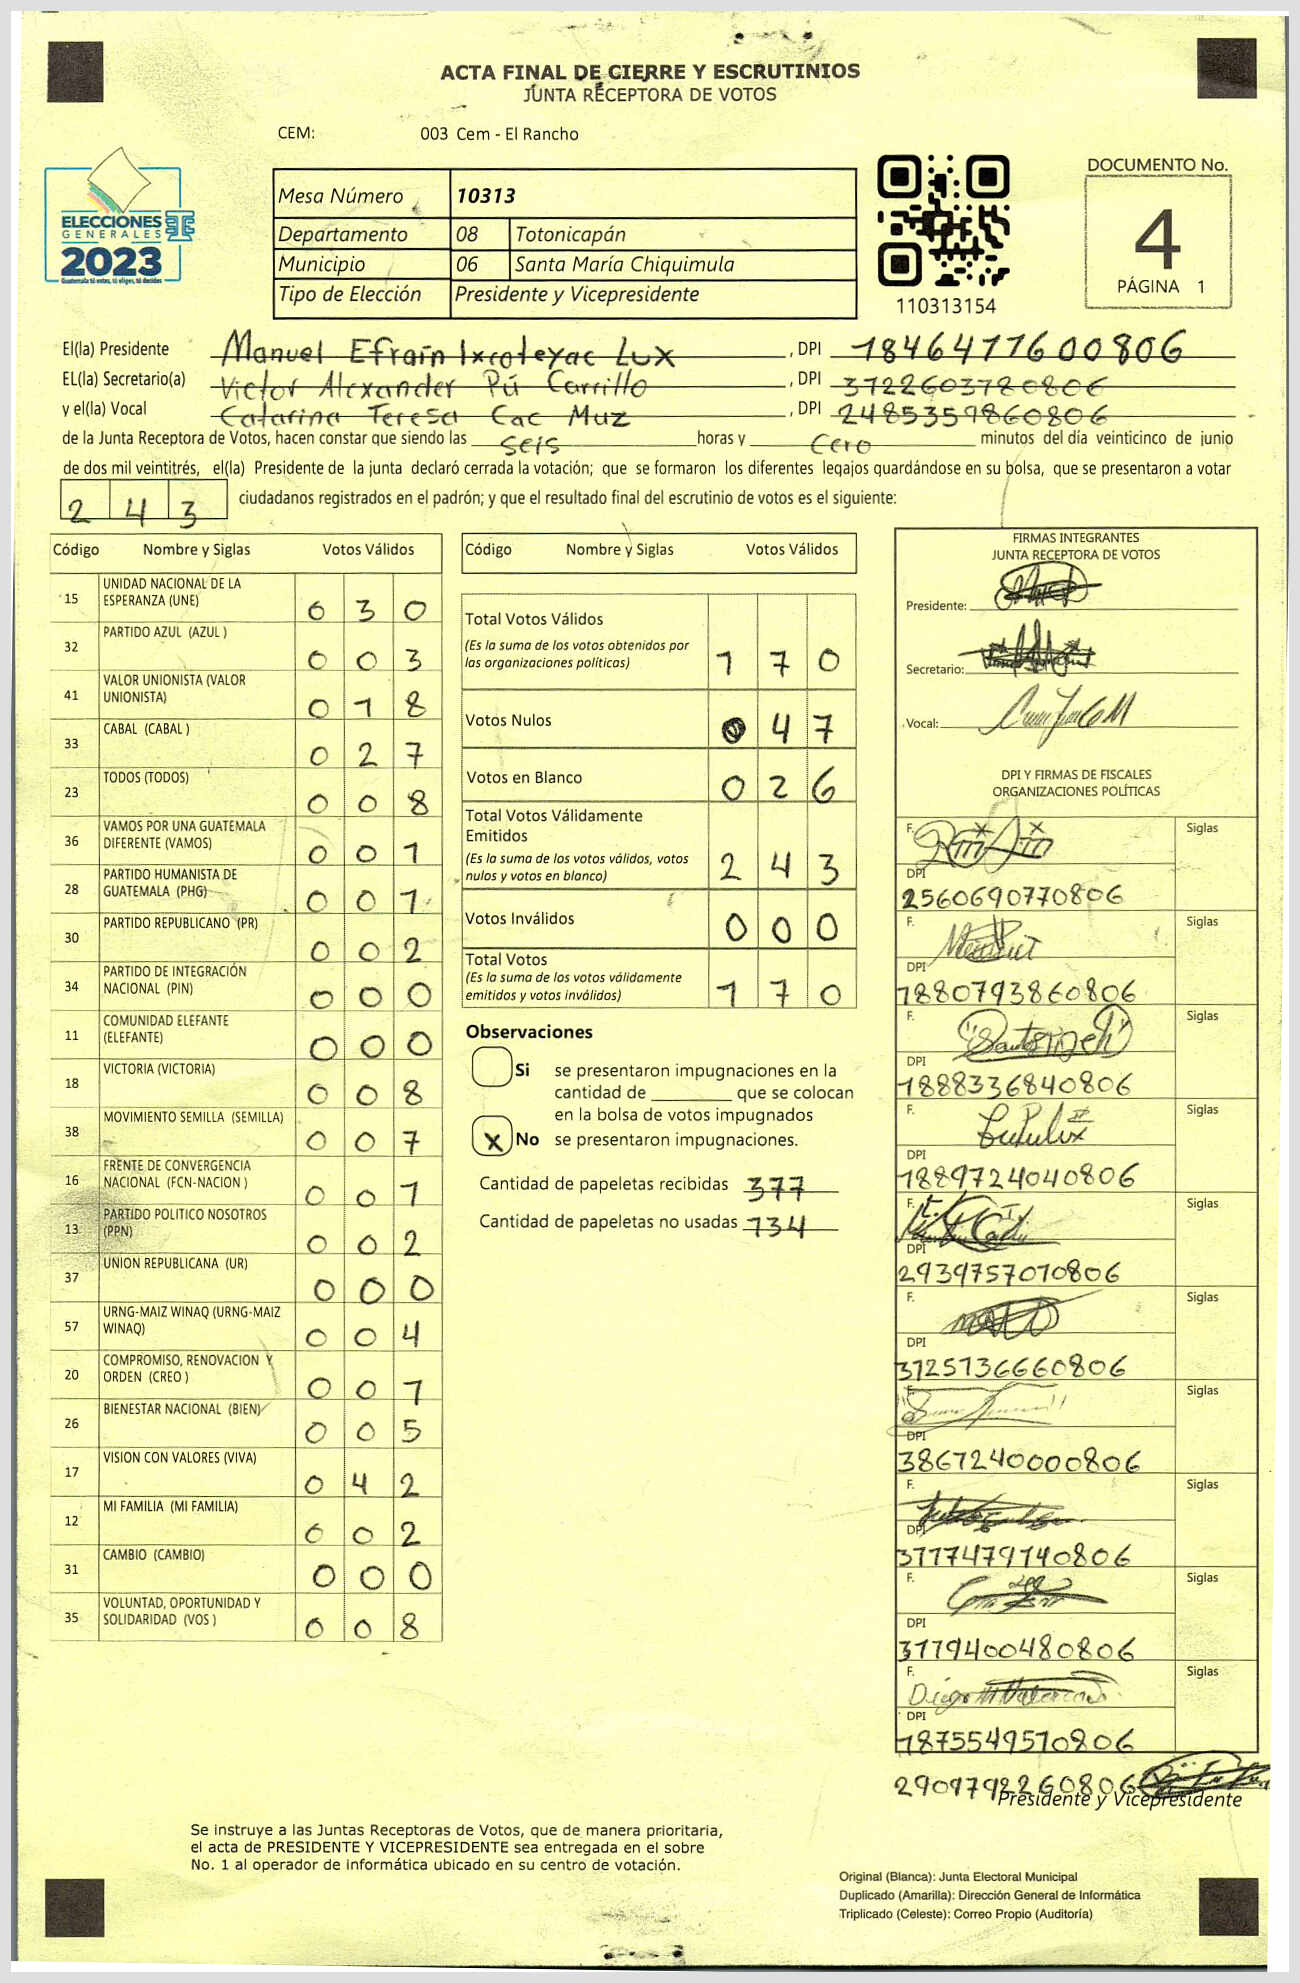 ACTA FINAL DE CIERRE Y ESCRUTINIOS
JUNTA RECEPTORA DE VOTOS
CEM: 003 Cem - El Rancho
ELECCIONES
GENERALES
2023
Guatemala tú votas, tú eliges, tú decides
Mesa Número 10313
Departamento 08 Totonicapán
Municipio 06 Santa María Chiquimula
Tipo de Elección Presidente y Vicepresidente
110313154
DOCUMENTO No.
4
PÁGINA 1
El(la) Presidente Manuel Efraín Ixcoteyac Lux, DPI 1846477600806
EL(la) Secretario(a) Victor Alexander Pú Carrillo, DPI 3722603780806
y el(la) Vocal Catarina Teresa Cac Muz, DPI 2485359860806
de la Junta Receptora de Votos, hacen constar que siendo las seis horas y cero minutos del día veinticinco de junio
de dos mil veintitrés, el(la) Presidente de la junta declaró cerrada la votación; que se formaron los diferentes legajos guardándose en su bolsa, que se presentaron a votar
243 ciudadanos registrados en el padrón; y que el resultado final del escrutinio de votos es el siguiente:
Código Nombre y Siglas Votos Válidos
15 UNIDAD NACIONAL DE LA
ESPERANZA (UNE) 0 3 0
32 PARTIDO AZUL (AZUL ) 0 0 3
41 VALOR UNIONISTA (VALOR
UNIONISTA) 0 1 8
33 CABAL (CABAL ) 0 2 7
23 TODOS (TODOS) 0 0 8
36 VAMOS POR UNA GUATEMALA
DIFERENTE (VAMOS) 0 0 1
28 PARTIDO HUMANISTA DE
GUATEMALA (PHG) 0 0 1
30 PARTIDO REPUBLICANO (PR) 0 0 2
34 PARTIDO DE INTEGRACIÓN
NACIONAL (PIN) 0 0 0
11 COMUNIDAD ELEFANTE
(ELEFANTE) 0 0 0
18 VICTORIA (VICTORIA) 0 0 8
38 MOVIMIENTO SEMILLA (SEMILLA) 0 0 7
16 FRENTE DE CONVERGENCIA
NACIONAL (FCN-NACION ) 0 0 1
13 PARTIDO POLITICO NOSOTROS
(PPN) 0 0 2
37 UNION REPUBLICANA (UR) 0 0 0
57 URNG-MAIZ WINAQ (URNG-MAIZ
WINAQ) 0 0 4
20 COMPROMISO, RENOVACION Y
ORDEN (CREO ) 0 0 1
26 BIENESTAR NACIONAL (BIEN) 0 0 5
17 VISION CON VALORES (VIVA) 0 4 2
12 MI FAMILIA (MI FAMILIA) 0 0 2
31 CAMBIO (CAMBIO) 0 0 0
35 VOLUNTAD, OPORTUNIDAD Y
SOLIDARIDAD (VOS ) 0 0 8
Código Nombre y Siglas Votos Válidos
Total Votos Válidos
(Es la suma de los votos obtenidos por
las organizaciones políticas) 1 7 0
Votos Nulos 0 4 7
Votos en Blanco 0 2 6
Total Votos Válidamente
Emitidos
(Es la suma de los votos válidos, votos
nulos y votos en blanco) 2 4 3
Votos Inválidos 0 0 0
Total Votos
(Es la suma de los votos válidamente
emitidos y votos inválidos) 1 7 0
Observaciones
Si se presentaron impugnaciones en la
cantidad de ________ que se colocan
en la bolsa de votos impugnados
X No se presentaron impugnaciones.
Cantidad de papeletas recibidas 377
Cantidad de papeletas no usadas 134
FIRMAS INTEGRANTES
JUNTA RECEPTORA DE VOTOS
Presidente:
Secretario:
Vocal:
DPI Y FIRMAS DE FISCALES
ORGANIZACIONES POLÍTICAS
F. Siglas
DPI
2560690770806
F. Siglas
DPI
1880793860806
F. Siglas
DPI
1888336840806
F. Siglas
DPI
1889724040806
F. Siglas
DPI
2939757010806
F. Siglas
DPI
3725136660806
F. Siglas
DPI
3867240000806
F. Siglas
DPI
3717479140806
F. Siglas
DPI
3779400480806
F. Siglas
DPI
1875549510806
2909792260806
Presidente y Vicepresidente
Se instruye a las Juntas Receptoras de Votos, que de manera prioritaria,
el acta de PRESIDENTE Y VICEPRESIDENTE sea entregada en el sobre
No. 1 al operador de informática ubicado en su centro de votación.
Original (Blanca): Junta Electoral Municipal
Duplicado (Amarilla): Dirección General de Informática
Triplicado (Celeste): Correo Propio (Auditoría)